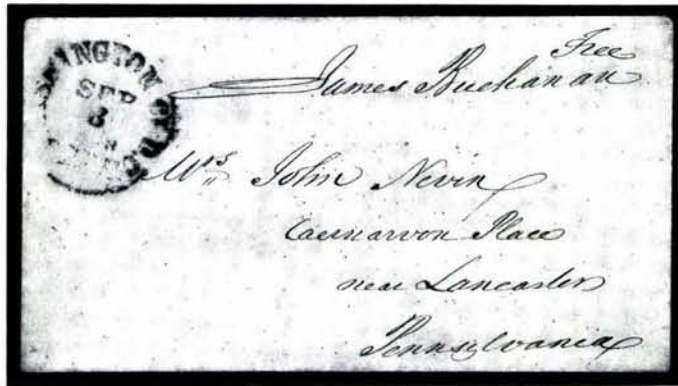 Free
James Buchanan
SEP
8
Mrs John Nevin
Caernarvon Place
near Lancaster
Pennsylvania